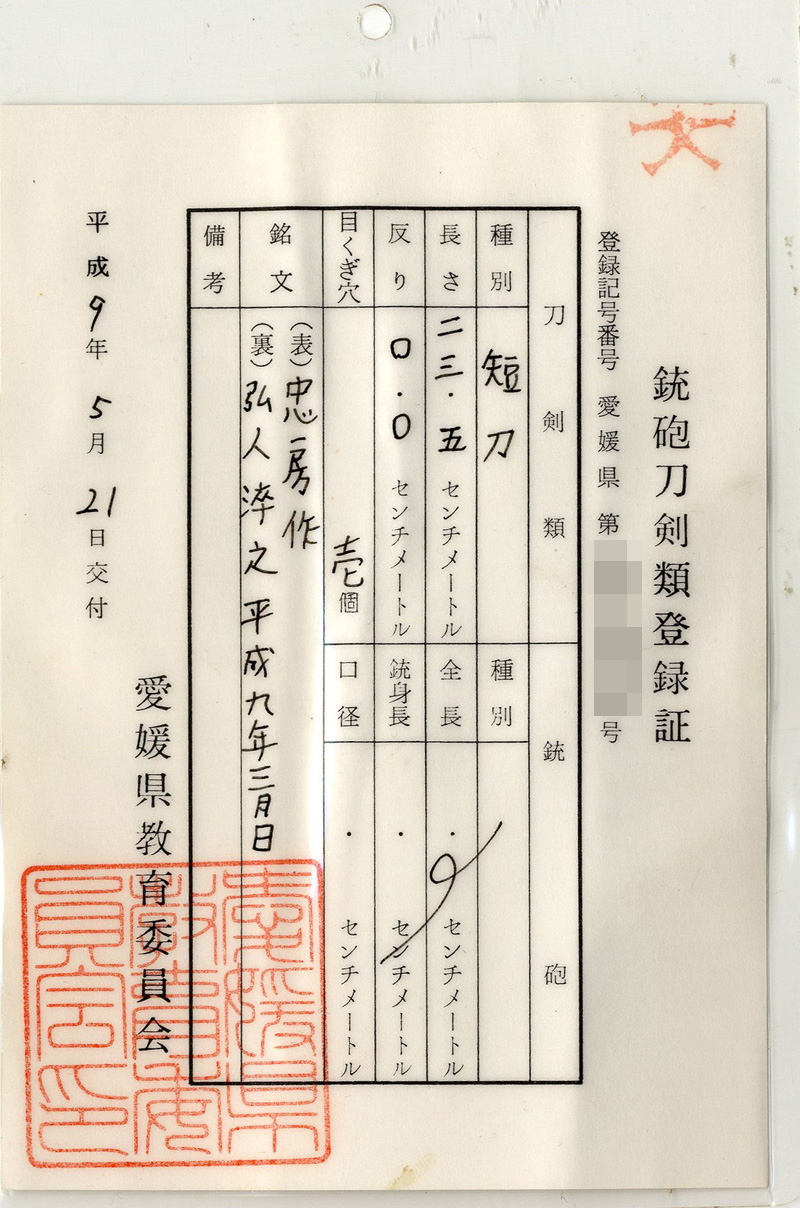 銃砲刀剣類登録証
登録記号番号 愛媛県 第 号
刀剣類
種別 短刀
長さ 二三.五 センチメートル
反り 0.0 センチメートル
目くぎ穴 壱個
銘文 (表)忠房作
(裏)弘人淬之平成九年三月日
備考
銃砲
種別
全長 . センチメートル
銃身長 . センチメートル
口径 . センチメートル
平成9年5月21日交付
愛媛県教育委員会
愛媛県
教育委
員会印